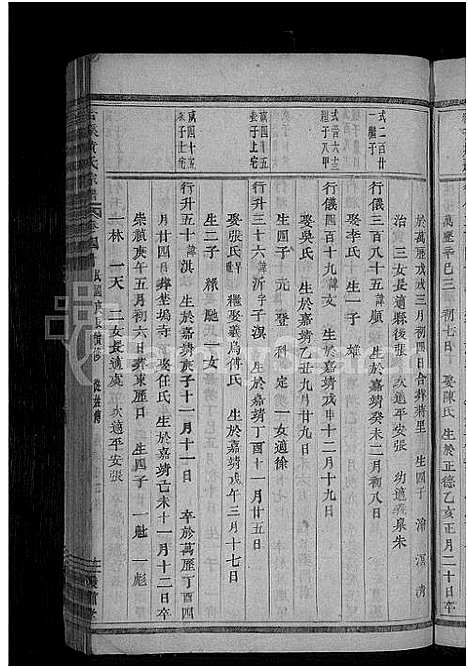 萬曆辛巳三月初七日卒
娶陳氏 生於正德乙亥正月二十日卒
於萬曆戊戌三月初四日合葬蔣里 生四子 滄 溟 清
治 三女長適縣後張 次適平安張 幼適義泉朱
式二百廿
一繼子
行儀三百八十五諱顯 生於嘉靖癸未二月初八日
娶李氏 生一子 雄
式一百六十三
繼子八甲
行儀四百十九諱文 生於嘉靖丁丑十二月十九日
娶吳氏 生於嘉靖乙丑九月廿九日
生四子 元 登 科 定 一女適徐
萬四十五
長子上宅
行升三十六諱沂字子淇 生於嘉靖丁酉十一月廿五日
娶張氏早 繼娶義烏傅氏 生於嘉靖戊午三月十七日
生二子 騄 馳 一女
萬四十五
次子上宅
行升五十諱淇 生於嘉靖庚子十一月十一日 卒於萬曆丁酉四
月廿四日葬坐塢寺 娶任氏 生於嘉靖己未十一月十二日卒
崇禎庚午五月初六日葬東曆日 生四子 一魁 一彪
一林 一天 二女長適虞 次適平安張